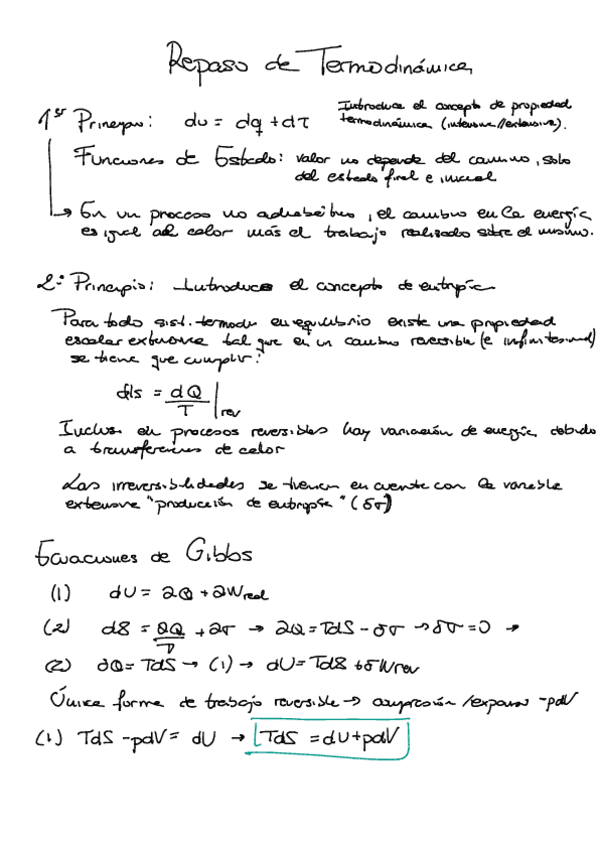 Repaso de Termodinámica
1er Principio: du = dq + dτ
Introduce el concepto de propiedad
termodinámica (intensiva/extensiva).
Funciones de Estado: valor no depende del camino, solo
del estado final e inicial
↳ En un proceso no adiabático, el cambio en la energía
es igual al calor más el trabajo realizado sobre el mismo.
2º Principio: Introduce el concepto de entropía
Para todo sist. termod en equilibrio existe una propiedad
escalar extensiva tal que en un cambio reversible (e infinitesimal)
se tiene que cumplir:
ds = dQ/T |rev
Incluso en procesos reversibles hay variación de energía debido
a transferencias de calor
Las irreversibilidades se tienen en cuenta con la variable
extensiva "producción de entropía" (δσ)
Ecuaciones de Gibbs
(1) dU = ∂Q + ∂Wreal
(2) dS = ∂Q/T + ∂σ → ∂Q = TdS - δσ → δσ = 0 →
(2) ∂Q = TdS → (1) → dU = TdS + δWrev
Única forma de trabajo reversible → compresión/expansión -pdV
(1) TdS - pdV = dU → TdS = dU + pdV